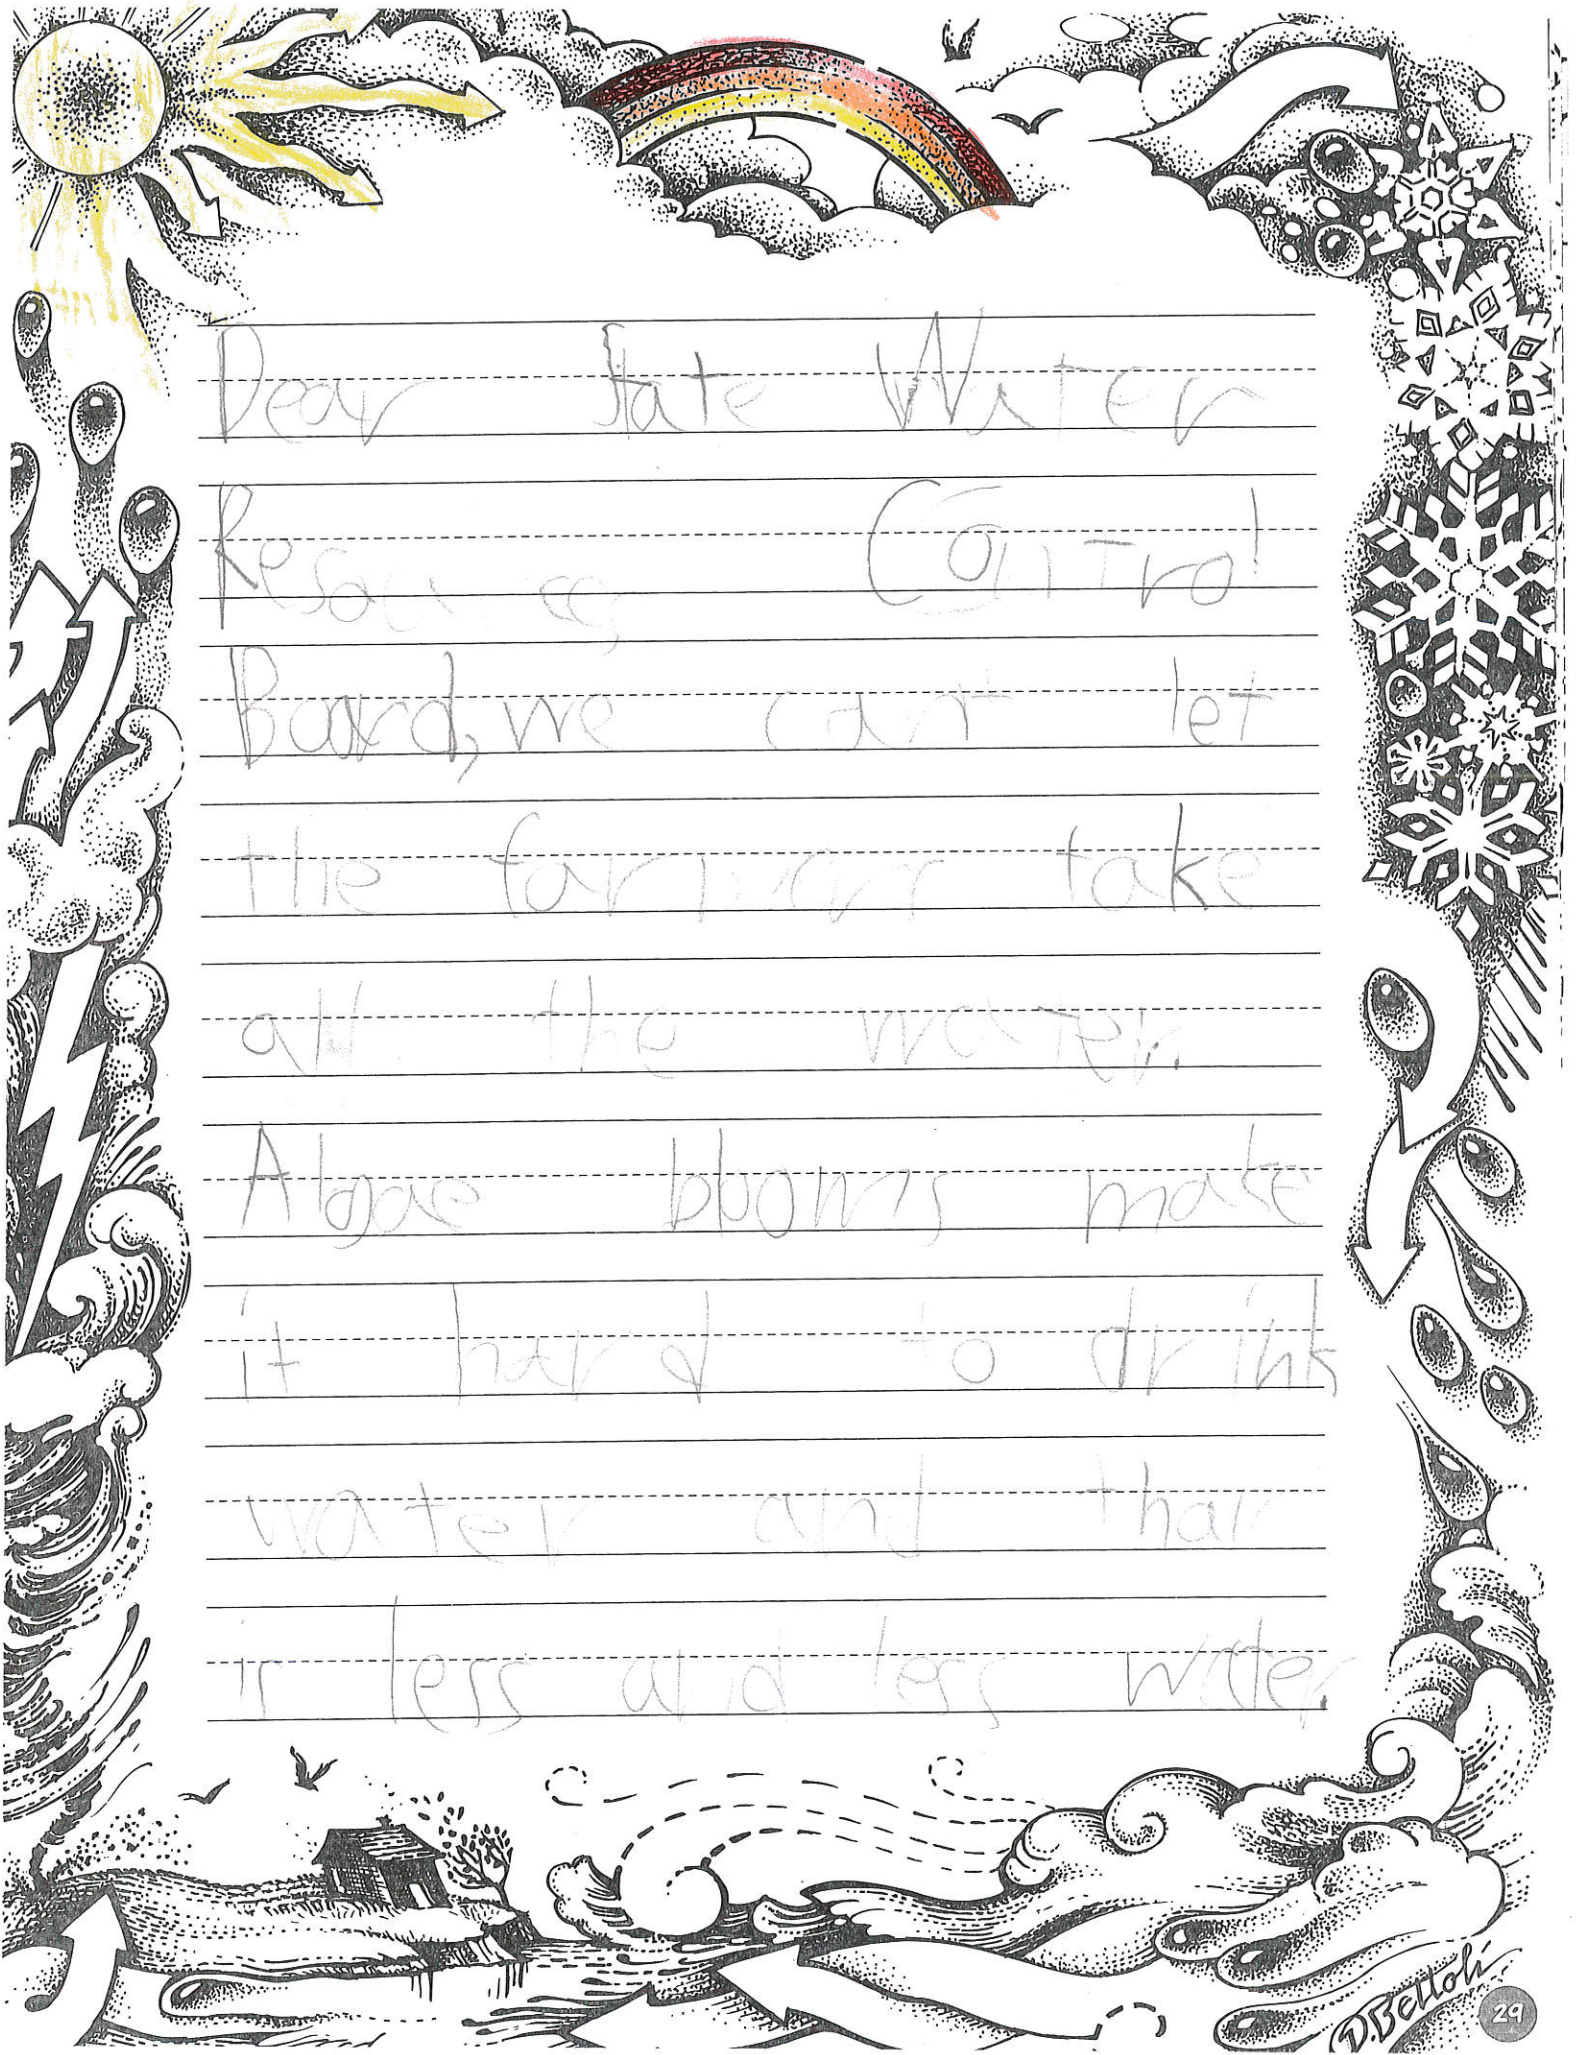 Dear State Water
Resources Control
Board, we can't let
the farmarr take
all the water.
Algae blooms make
it hard to drink
water and thar
ir less and less water.
D.Bellohi
29